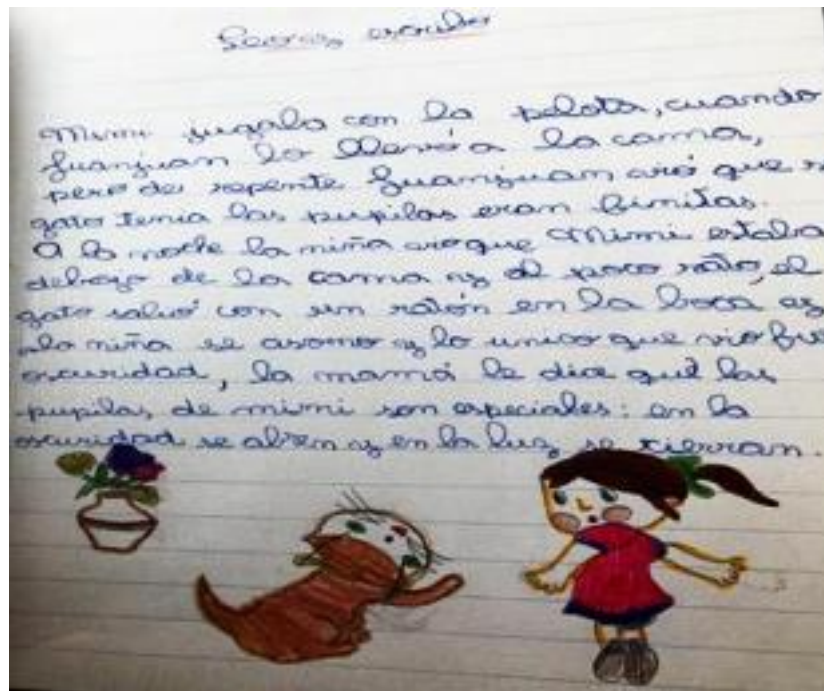 escribo
Mimi jugaba con la pelota, cuando
Juanjuan lo llevó a la cama,
pero de repente Juanjuan vió que
gato tenia las pupilas eran finitas.
A la noche la niña vio que Mimi estaba
debajo de la cama y al poco rato, el
gato salió con un ratón en la boca y
la niña se asomo y lo unico que vio fue
oscuridad, la mamá le dice que las
pupilas de mimi son especiales: en la
oscuridad se abren y en la luz se cierran.